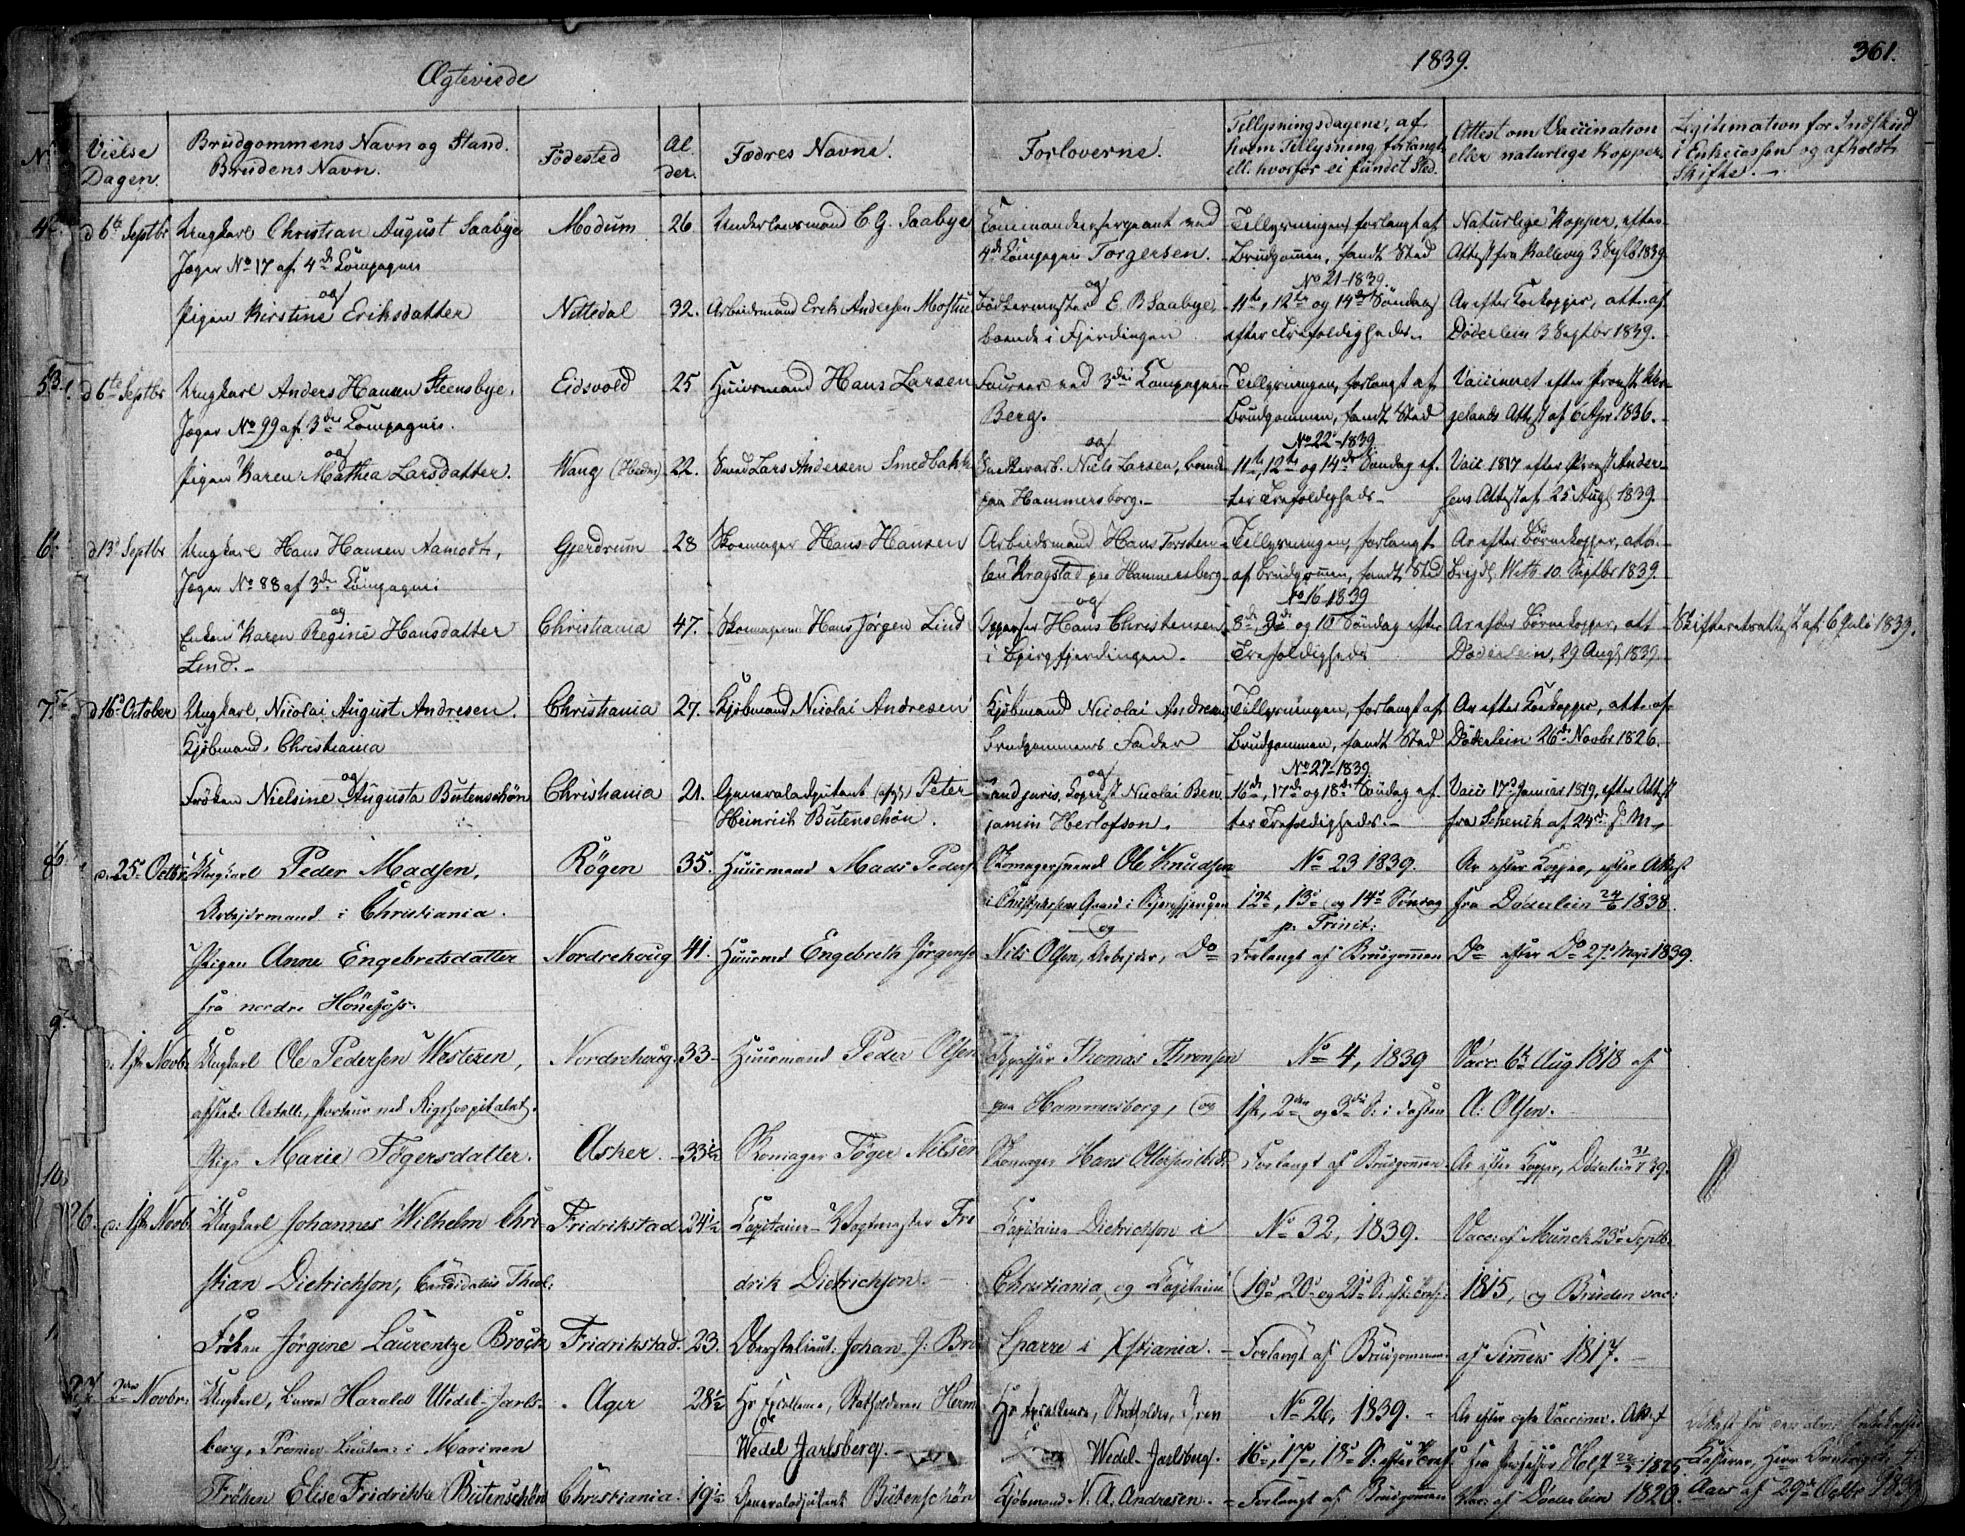 Ægteviede
1839.
361.
Vielse Dagen.
Brudgommens Navn og Stand.
Brudens Navn.
Födested
Al-
der.
Fædres Navne.
Forloverne.
Tillysningsdagene, af
hvem Tillysning forlangt
ell. hvorfor ei fundet Sted.
Attest om Vaccination
eller naturlige Kopper.
Legitimation for Indskud
i Enkecassen og afholdt
Skifte.
4. d 6te Septbr Ungkarl Christian August Saabye Modum 26 Underlensmand C. G. Saabye Commandeersergeant ved Tillysningen, forlangt af Naturlige Kopper, efter
Jæger No 17 af 4de Compagnie 4de Compagnie Torgersen. Brudgommen, fandt Sted Attest fra 3 Septb 1839
og og No 21-1839.
Pigen Kirstine Eriksdatter Nittedal 32. Arbeidsmand Erik Andersen Bödkermester E. B Saabye, 11te, 12te og 14de Söndag Ar efter Kokopper, att. af
boende i Fjerdingen efter Trefoldigheds. Döderlein 3 Septbr 1839.
5. d 6te Septbr Ungkarl Anders Hansen Steensbye, Eidsvold 25 Huusmand Hans Larsen Foureer ved 3die Compagnie Tillysningen, forlangt af Vaccineret efter Provst Wer-
Jæger No 99 af 3die Compagnie. Berg. Brudgommen, fandt Sted gelands Attest af 6 Apr. 1836.
og og No 22-1839
Pigen Karen Mathea Larsdatter. Wang (Hedm) 22. Smed Lars Andersen Smedbakke Niels Larsen, boende 11te, 12te og 14de Söndag ef- Vacc. 1817 efter Provst Ander-
paa Hammersborg. ter Trefoldigheds sens Attest af 25 Augt 1839.
6. d 13de Septbr Ungkarl Hans Hansen Aamodt, Gjerdrum 28 Skoemager Hans Hansen Arbeidsmand Hans Torsten- Tillysningen, forlangt Ar efter Börnekopper, att.
Jæger No 88 af 3die Compagnie sen Kragstad paa Hammersberg af Brudgommen, fandt Sted 10. Septbr 1839.
og og No 16 1839
Enken Karen Regine Hansdatter Christiania 47. Skoemager Hans Jörgen Lind Oppasser Hans Christensen 8de, 9de og 10 Söndag efter Ar efter Börnekopper, att Skifteretsattest af 6 Juli 1839.
Lind. i Bjergfjerdingen. Trefoldigheds Döderlein, 29 Augt 1839.
7. d 16de October Ungkarl, Nicolai August Andresen. Christiania 27. Kjöbmand Nicolai Andresen Kjöbmand Nicolai Andresen Tillysningen, forlangt af Ar efter Kokopper, att. af
Kjöbmand, Christiania Brudgommens Fader Brudgommen, fandt Sted Döderlein 26de Novbr 1826.
og og No 27-1839.
Fröken Nielsine Augusta Butenschön Christiania 21. Generaladjutant (afg.) Peter Cand juris, Nicolai Ben- 16de, 17de og 18de Söndag ef- Vacc 17de Januar 1819, efter Attest
Heinrich Butenschön. jamin Herlofson. ter Trefoldigheds. fra Schenck af 24de
8. d. 25. Octbr Ungkarl Peder Madsen, Rögen 35. Huusmand Mads Peders. Skomagersvend Ole Knudsen No 23 1839. Ar efter Kopper, efter Attest
Arbejdsmand i Christiania. Gaard i 12te, 13de og 14de Söndag fra Döderlein 24/6 1838.
og p. Trinit:
Pigen Anne Engebretsdatter Nordrehoug 41. Huusmd Engebreth Jörgens. Nils Olsen, Arbejder, Do Forlangt af Brudgommen Do efter Do 27de Maj 1839.
fra nordre Hönefoss.
9. d. 1ste Novbr Ungkarl Ole Pedersen Westeren, Nordrehoug. 33 Huusmand Peder Olsen Oppasser Thomas Thronsen No 4, 1839 Vacc. 6te Aug 1818 af
Porteur ved Rigshospitalet. paa Hammersborg, og 1ste, 2den og 3die S: i Fasten A: Olsen.
Pige Marie Tögersdatter. Asker. 33½ Skomager Töger Nilsen Skomager Hans Forlangt af Brudgommen Ar efter Kopper, Döderlein 39.
10. 26. d: 1ste Novb. Ungkarl Johannes Wilhelm Chri- Fridrikstad 24½ Capitain Vagtmester Fre Capitain Dietrichson i No 32, 1839. Vacc: af Munch 23de Septb.
stian Dietrichson, Candidatus Theol: drik Dietrichson. Christiania, og Capitain 19de, 20de og 21de S: eft: Tref: 1815, og Bruden vac:
Fröken Jörgine Laurentze Broch Fridrikstad. 23. Oberstlieut: Johan J: Bro Sparre i Xstiania. Forlangt af Brudgommen af Simers 1817.
27 2den Novbr: Ungkarl, Baron Harald Wedel-Jarls- Ager 28½ Hr Excellence, Statholderen Herm Hr Excellence, Statholder, Greve No 26, 1839. Ar efter ægte Vaccine. Attest
berg, Premier-Lieuten: i Marinen Wedel Jarlsberg. Wedel-Jarlsberg. 16de, 17de, 18de S: efter Tref. fra Professor Holst 1825
Fröken Elise Fridrikke Butenschön Christiania. 19½ Generaladjutant Butenschön Kjöbmand N. A. Andresen. Forlangt af Brudgommen Vac: af Döderlein 1820. Aars af 29de Octbr 1839